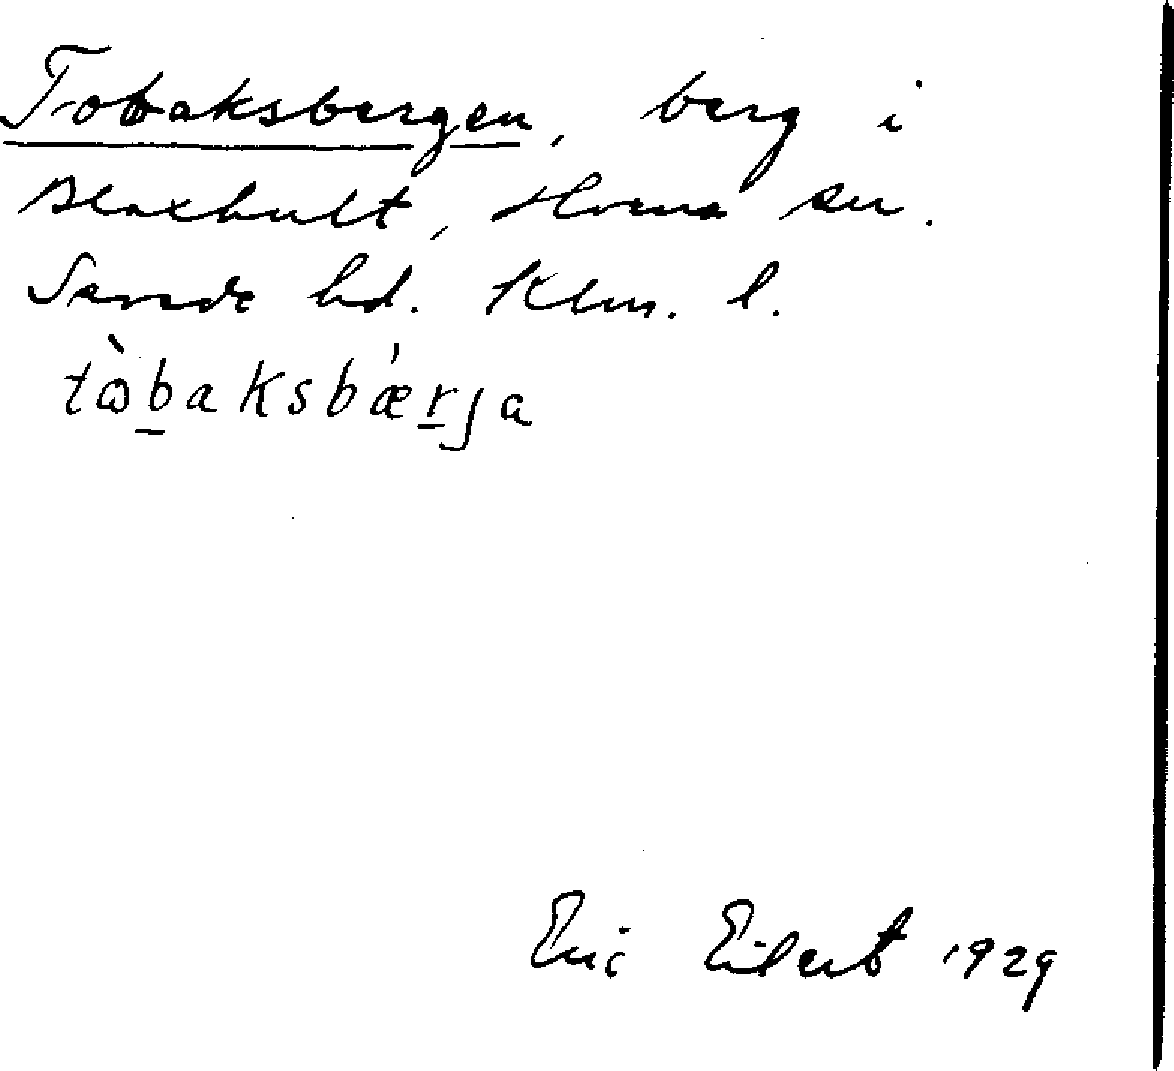 Tobaksbergen, berg i
Blaxhult, Hvena sn.
Sevede hd. Klm. l.
tὼbaksbǽrja
Eric Eilert 1929